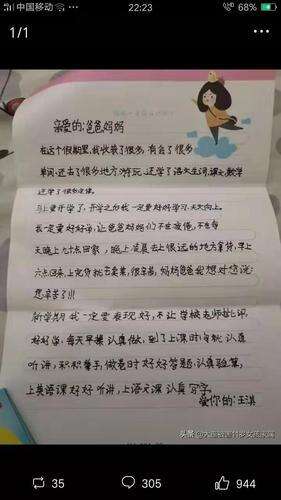 中国移动
22:23
68%
1/1
亲爱的:爸爸妈妈
在这个假期里,我收获了很多,有会了很多
单词,还去了很多地方游玩,还学了语文生词,课文,数学
还学了很多定律。
马上要开学了,开学之后我一定要好好学习,天天向上。
我一定要好好学,让爸爸妈妈们不在疲倦,不在每
天晚上九十点回家,晚上凌晨去上很远的地方拿货,早上
六点回来,上完货就去卖菜,很辛苦,妈妈爸爸我想对您说:
您辛苦了!!!
新学期 我一定要表现好,不让学校老师批评,
好好学,每天早操认真做,到了上课时间就认真
听讲,积极举手,做卷时好好答题,认真验算,
上英语课好好听讲,上语文课认真写字。
爱你的:王淇
35
305
944